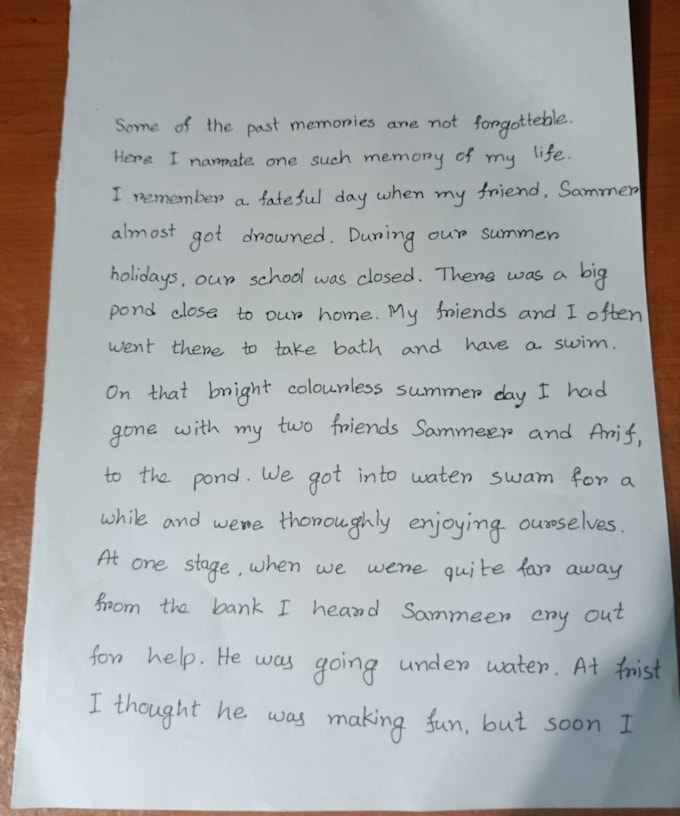 Some of the past memories are not forgotteble.
Here I narrate one such memory of my life.
I remember a fateful day when my friend, Sammer
almost got drowned. During our summer
holidays, our school was closed. There was a big
pond close to our home. My friends and I often
went there to take bath and have a swim.
On that bright colourless summer day I had
gone with my two friends Sammeer and Arif,
to the pond. We got into water swam for a
while and were thoroughly enjoying ourselves.
At one stage, when we were quite far away
from the bank I heard Sammeer cry out
for help. He was going under water. At frist
I thought he was making fun, but soon I